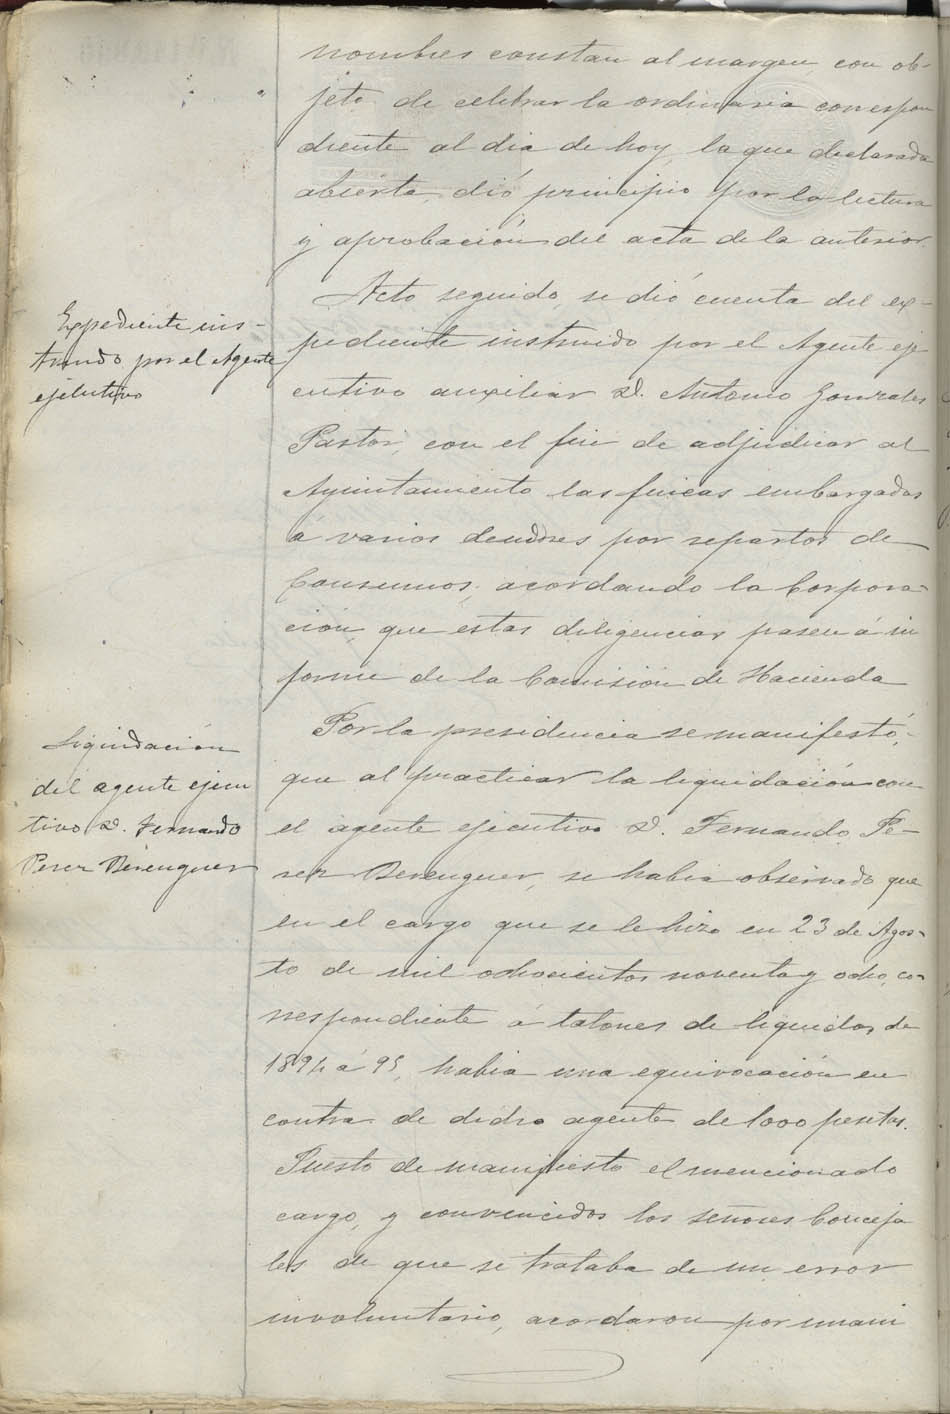 nombres constan al margen, con ob-
jeto de celebrar la ordinaria correspon
diente al dia de hoy, la que declarada
abierta, dió principio por la lectura
y aprobación del acta de la anterior.
Expediente ins-
truido por el Agente
ejecutivo
Acto seguido, se dió cuenta del ex-
pediente instruido por el Agente eje
cutivo auxiliar D. Antonio Gonzales
Pastor, con el fin de adjudicar al
Ayuntamiento las fincas embargadas
á varios deudores por repartos de
Consumos; acordando la Corpora-
ción, que estas diligencias pasen á in
forme de la Comisión de Hacienda
Liquidación
del agente ejecu
tivo D. Fernando
Perez Berenguer
Por la presidencia se manifestó,
que al practicar la liquidación con
el agente ejecutivo D. Fernando Pe-
rez Berenguer, se habia observado que
en el cargo que se le hizo en 23 de Agos-
to de mil ochocientos noventa y ocho, co-
rrespondiente á talones de liquidos de
1894 á 95, habia una equivocación en
contra de dicho agente de 1000 pesetas.
Puesto de manifiesto el mencionado
cargo, y convencidos los señores Conceja
les de que se trataba de un error
involuntario, acordaron por unani